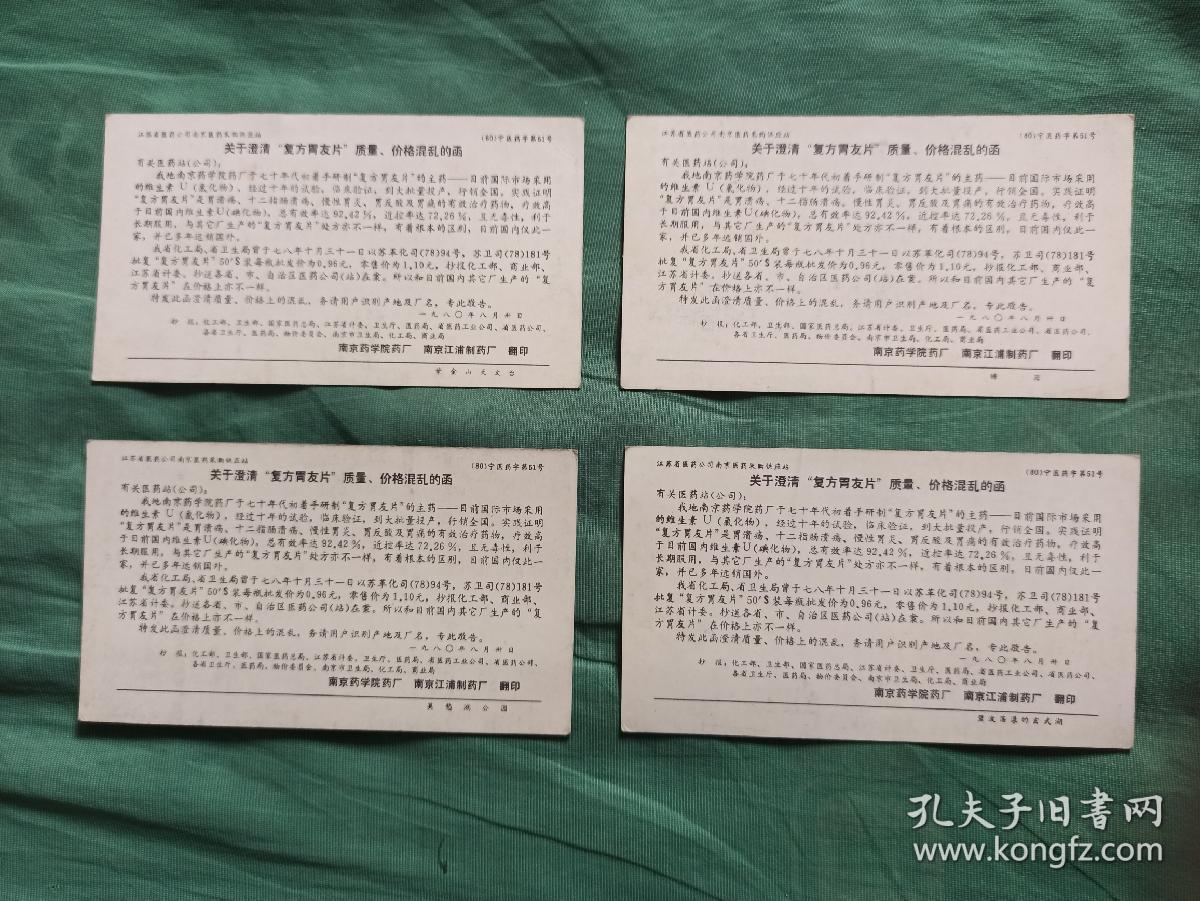 江苏省医药公司南京医药采购供应站
(80)宁医药字第51号
关于澄清“复方胃友片”质量、价格混乱的函
有关医药站(公司)：
我地南京药学院药厂于七十年代初着手研制“复方胃友片”的主药——目前国际市场采用
的维生素U(氯化物)，经过十年的试验，临床验证，到大批量投产，行销全国。实践证明
“复方胃友片”是胃溃疡、十二指肠溃疡、慢性胃炎、胃反酸及胃痛的有效治疗药物，疗效高
于目前国内维生素U(碘化物)，总有效率达92.42%，近控率达72.26%，且无毒性，利于
长期服用，与其它厂生产的“复方胃友片”处方亦不一样，有着根本的区别，目前国内仅此一
家，并已多年远销国外。
我省化工局、省卫生局曾于七八年十月三十一日以苏革化司(78)94号，苏卫司(78)181号
批复“复方胃友片”50'S装每瓶批发价为0.96元，零售价为1.10元，抄报化工部、商业部、
江苏省计委。抄送各省、市、自治区医药公司(站)在案。所以和目前国内其它厂生产的“复
方胃友片”在价格上亦不一样。
特发此函澄清质量、价格上的混乱，务请用户识别产地及厂名，专此敬告。
一九八〇年八月卅日
抄报：化工部、卫生部、国家医药总局、江苏省计委、卫生厅、医药局、省医药工业公司、省医药公司、
各省卫生厅、医药局、物价委员会、南京市卫生局、化工局、商业局
南京药学院药厂 南京江浦制药厂 翻印
紫金山天文台
江苏省医药公司南京医药采购供应站
(80)宁医药字第51号
关于澄清“复方胃友片”质量、价格混乱的函
有关医药站(公司)：
我地南京药学院药厂于七十年代初着手研制“复方胃友片”的主药——目前国际市场采用
的维生素U(氯化物)，经过十年的试验，临床验证，到大批量投产，行销全国。实践证明
“复方胃友片”是胃溃疡、十二指肠溃疡。慢性胃炎、胃反酸及胃痛的有效治疗药物，疗效高
于目前国内维生素U(碘化物)，总有效率达92.42%，近控率达72.26%，且无毒性，利于
长期服用，与其它厂生产的“复方胃友片”处方亦不一样，有着根本的区别，目前国内仅此一
家，并已多年远销国外。
我省化工局、省卫生局曾于七八年十月三十一日以苏革化司(78)94号，苏卫司(78)181号
批复“复方胃友片”50'S装每瓶批发价为0.96元，零售价为1.10元，抄报化工部、商业部、
江苏省计委。抄送各省、市、自治区医药公司(站)在案。所以和目前国内其它厂生产的“复
方胃友片”在价格上亦不一样。
特发此函澄清质量、价格上的混乱，务请用户识别产地及厂名，专此敬告。
一九八〇年八月卅日
抄报：化工部、卫生部、国家医药总局、江苏省计委、卫生厅、医药局、省医药工业公司、省医药公司、
各省卫生厅、医药局、物价委员会、南京市卫生局、化工局、商业局
南京药学院药厂 南京江浦制药厂 翻印
江苏省医药公司南京医药采购供应站
(80)宁医药字第51号
关于澄清“复方胃友片”质量、价格混乱的函
有关医药站(公司)：
我地南京药学院药厂于七十年代初着手研制“复方胃友片”的主药——目前国际市场采用
的维生素U(氯化物)，经过十年的试验，临床验证，到大批量投产，行销全国。实践证明
“复方胃友片”是胃溃疡、十二指肠溃疡、慢性胃炎、胃反酸及胃痛的有效治疗药物，疗效高
于目前国内维生素U(碘化物)，总有效率达92.42%，近控率达72.26%，且无毒性，利于
长期服用，与其它厂生产的“复方胃友片”处方亦不一样，有着根本的区别，目前国内仅此一
家，并已多年远销国外。
我省化工局、省卫生局曾于七八年十月三十一日以苏革化司(78)94号，苏卫司(78)181号
批复“复方胃友片”50'S装每瓶批发价为0.96元，零售价为1.10元，抄报化工部、商业部、
江苏省计委。抄送各省、市、自治区医药公司(站)在案。所以和目前国内其它厂生产的“复
方胃友片”在价格上亦不一样。
特发此函澄清质量、价格上的混乱，务请用户识别产地及厂名，专此敬告。
一九八〇年八月卅日
抄报：化工部、卫生部、国家医药总局、江苏省计委、卫生厅、医药局、省医药工业公司、省医药公司、
各省卫生厅、医药局、物价委员会、南京市卫生局、化工局、商业局
南京药学院药厂 南京江浦制药厂 翻印
莫愁湖公园
江苏省医药公司南京医药采购供应站
(80)宁医药字第51号
关于澄清“复方胃友片”质量、价格混乱的函
有关医药站(公司)：
我地南京药学院药厂于七十年代初着手研制“复方胃友片”的主药——目前国际市场采用
的维生素U(氯化物)，经过十年的试验，临床验证，到大批量投产，行销全国。实践证明
“复方胃友片”是胃溃疡、十二指肠溃疡、慢性胃炎、胃反酸及胃痛的有效治疗药物，疗效高
于目前国内维生素U(碘化物)，总有效率达92.42%，近控率达72.26%，且无毒性，利于
长期服用，与其它厂生产的“复方胃友片”处方亦不一样，有着根本的区别，目前国内仅此一
家，并已多年远销国外。
我省化工局、省卫生局曾于七八年十月三十一日以苏革化司(78)94号，苏卫司(78)181号
批复“复方胃友片”50'S装每瓶批发价为0.96元，零售价为1.10元，抄报化工部、商业部、
江苏省计委。抄送各省、市、自治区医药公司(站)在案。所以和目前国内其它厂生产的“复
方胃友片”在价格上亦不一样。
特发此函澄清质量、价格上的混乱，务请用户识别产地及厂名，专此敬告。
一九八〇年八月卅日
抄报：化工部、卫生部、国家医药总局、江苏省计委、卫生厅、医药局、省医药工业公司、省医药公司、
各省卫生厅、医药局、物价委员会、南京市卫生局、化工局、商业局
南京药学院药厂 南京江浦制药厂 翻印
碧波荡漾的玄武湖
孔夫子旧书网
www.kongfz.com